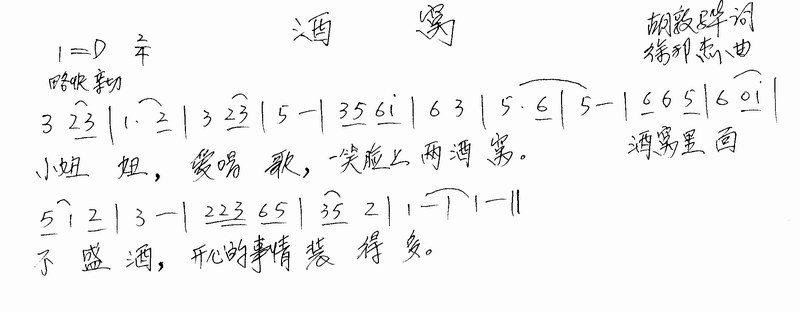 酒窝
1=D 2/4
胡敦骅词
徐邦杰曲
略快 亲切
3 23 | 1· 2 | 3 23 | 5 - | 35 6i | 6 3 | 5· 6 | 5 - | 6 6 5 | 6 0i |
小姐姐，爱唱歌，一笑脸上两酒窝。 酒窝里面
5 1 2 | 3 - | 223 65 | 35 2 | 1 - | 1 - ||
不盛酒，开心的事情装得多。